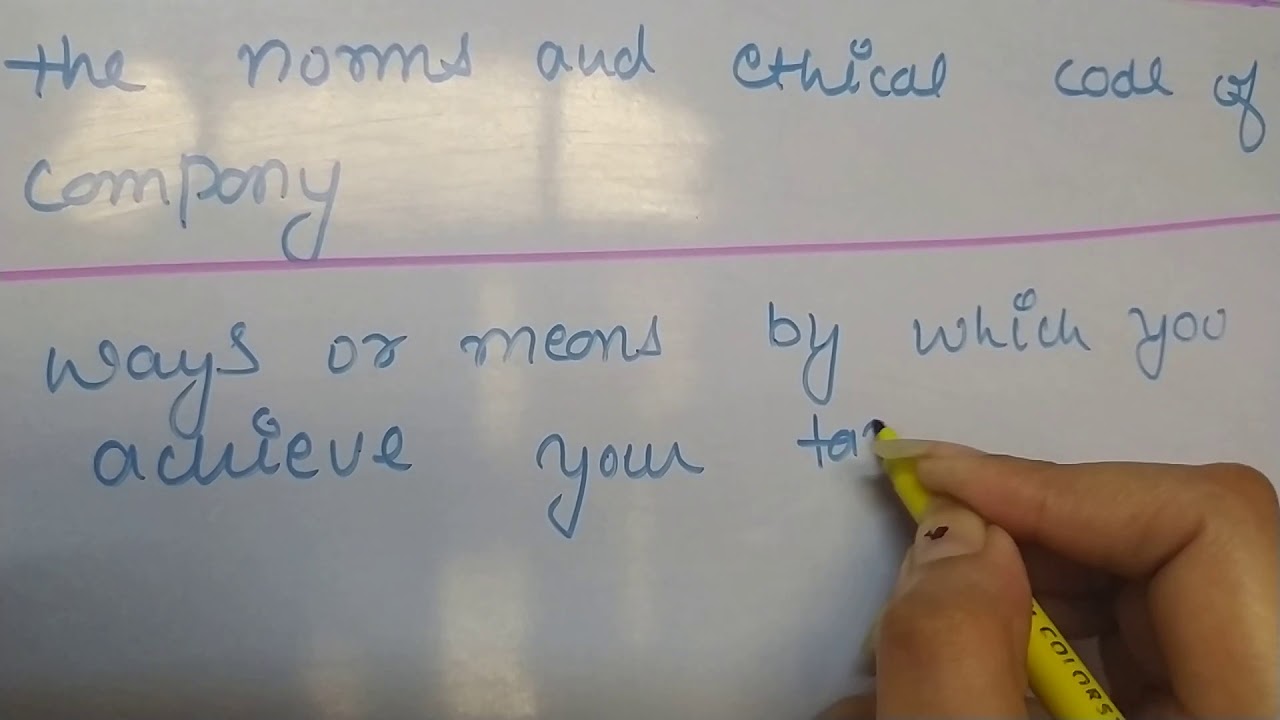 the norms and ethical code of
compony
ways or meons by which you
achieve your tar
COLORS